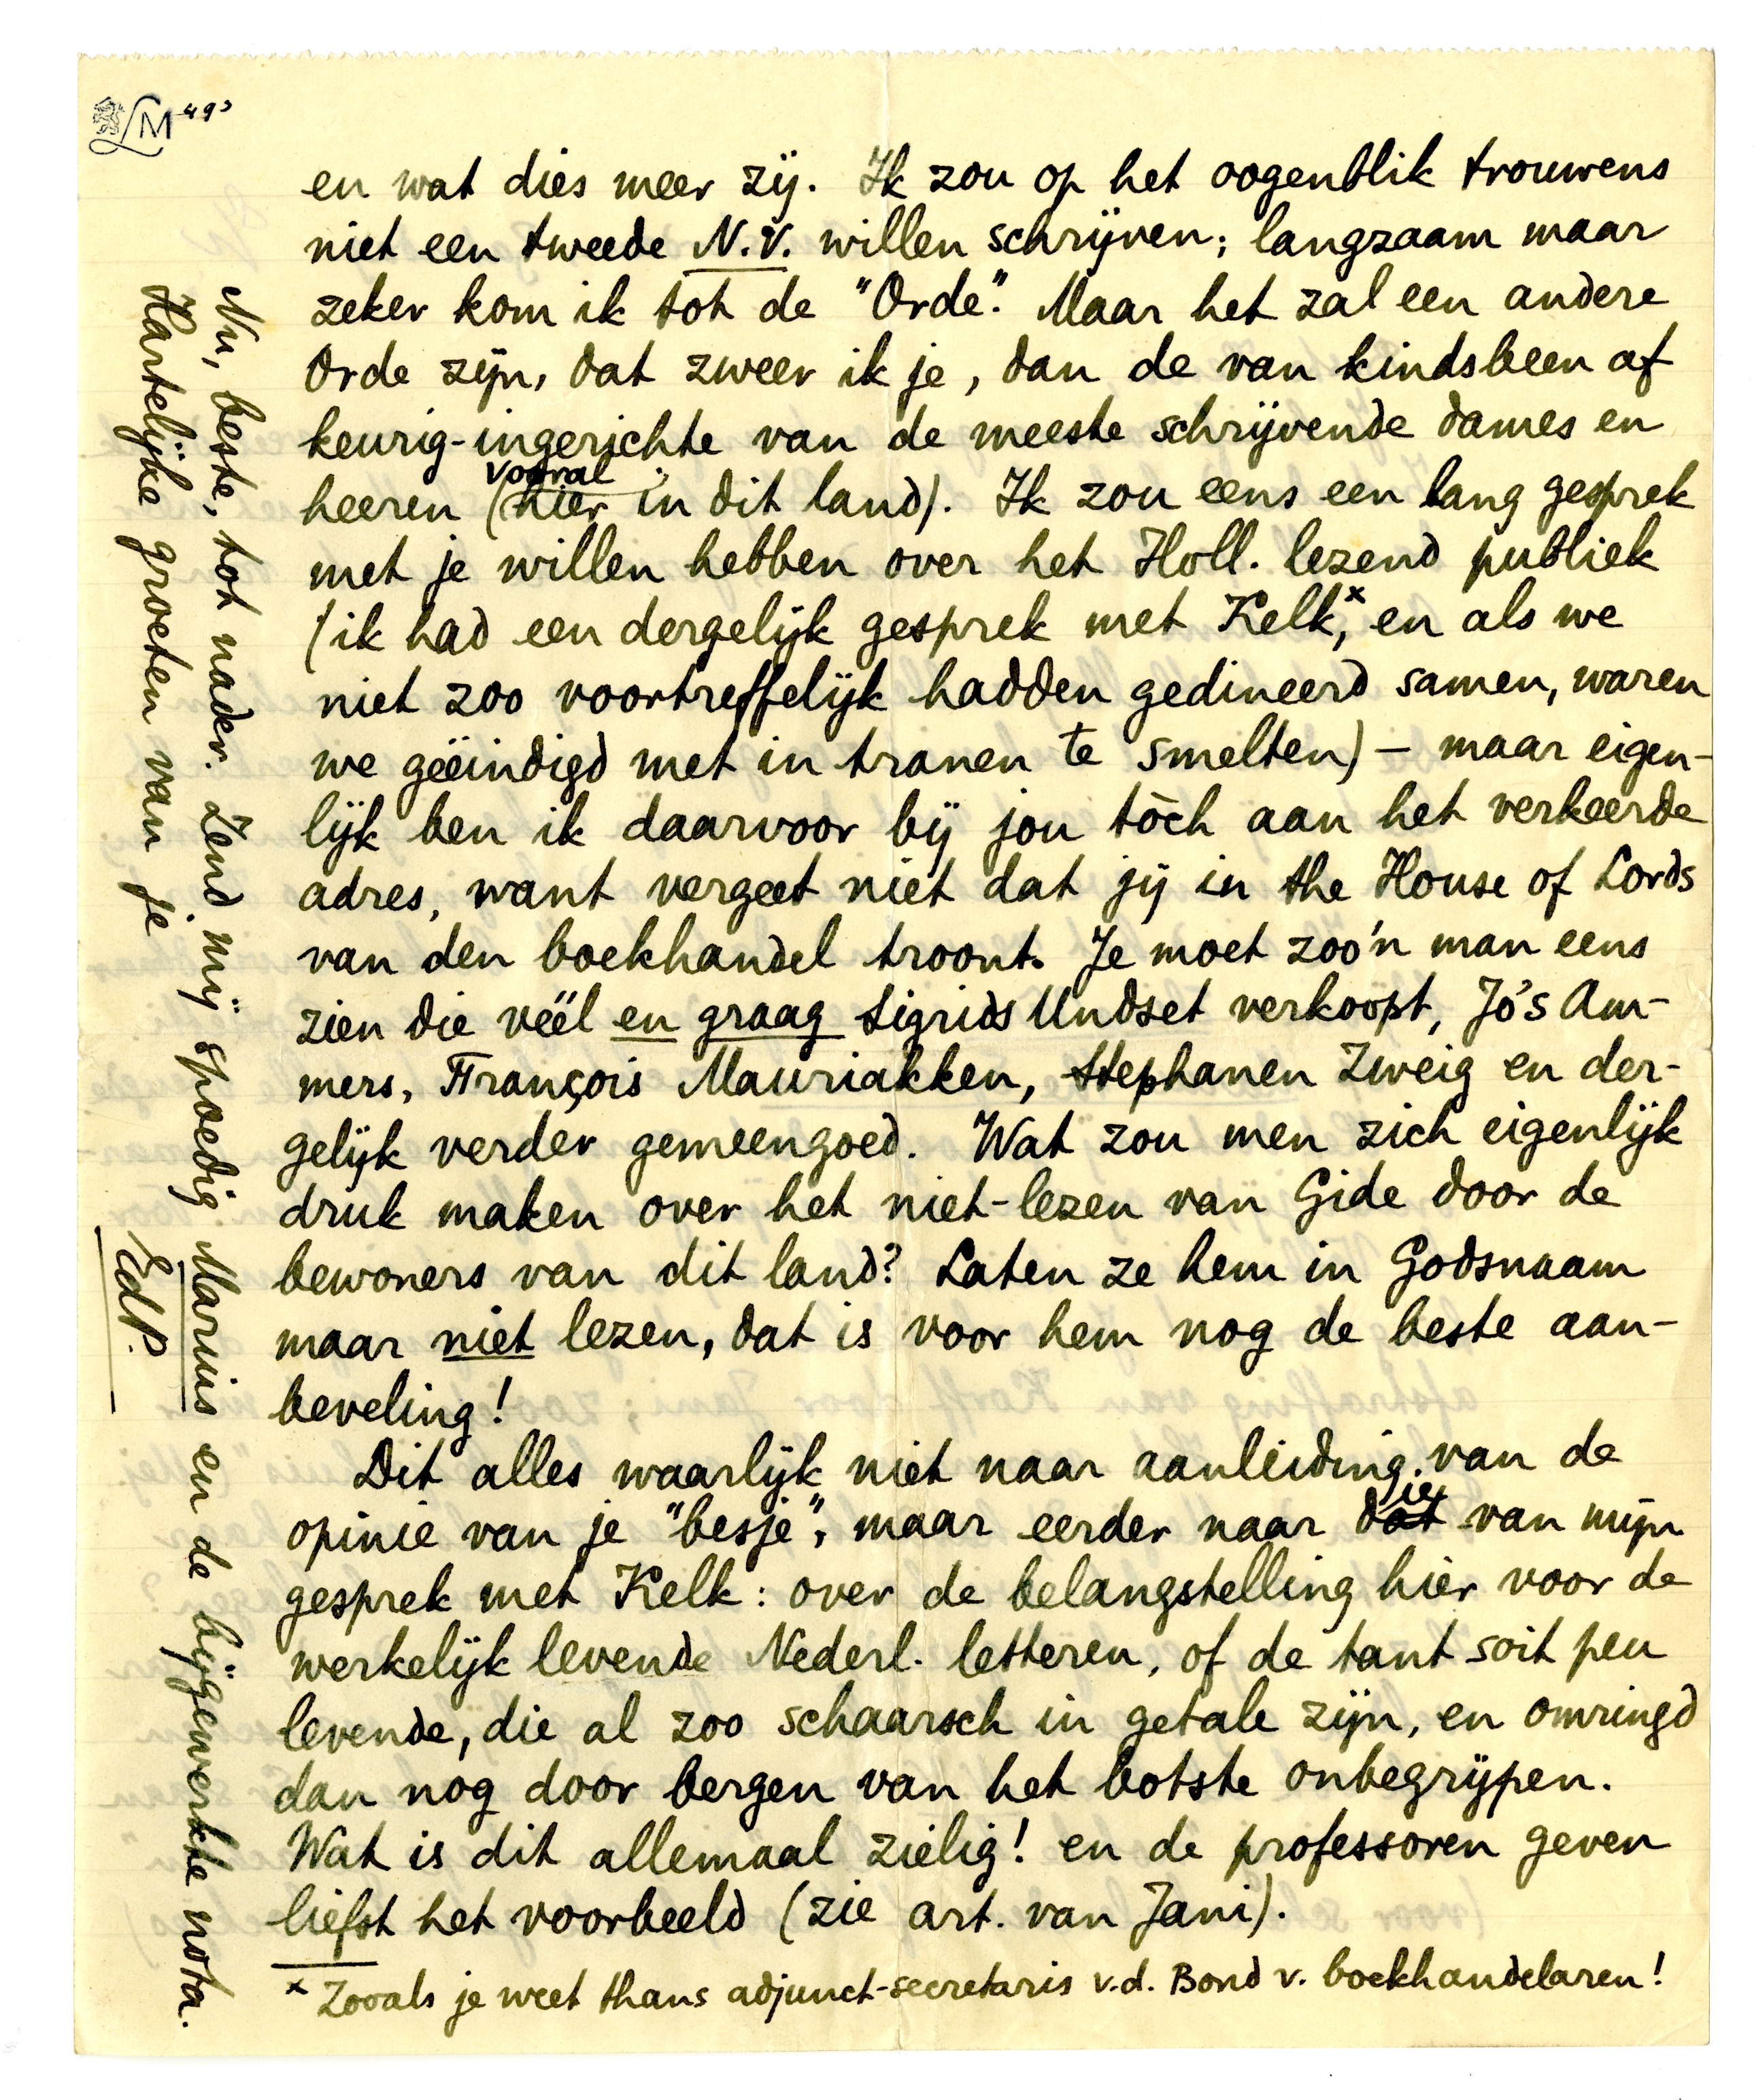 LM 493
en wat dies meer zij. Ik zou op het oogenblik trouwens
niet een tweede N.V. willen schrijven; langzaam maar
zeker kom ik tot de "Orde". Maar het zal een andere
Orde zijn, dat zweer ik je, dan de van kindsbeen af
keurig-ingerichte van de meeste schrijvende dames en
heeren (vooral hier in dit land). Ik zou eens een lang gesprek
met je willen hebben over het Holl. lezend publiek
(ik had een dergelijk gesprek met Kelk,x en als we
niet zoo voortreffelijk hadden gedineerd samen, waren
we geëindigd met in tranen te smelten) – maar eigen-
lijk ben ik daarvoor bij jou tòch aan het verkeerde
adres, want vergeet niet dat jij in the House of Lords
van den boekhandel troont. Je moet zoo'n man eens
zien die véél en graag Sigrids Undset verkoopt, Jo's Am-
mers, François Mauriakken, Stephanen Zweig en der-
gelijk verder gemeengoed. Wat zou men zich eigenlijk
druk maken over het niet-lezen van Gide door de
bewoners van dit land? Laten ze hem in Godsnaam
maar niet lezen, dat is voor hem nog de beste aan-
beveling!
Dit alles waarlijk niet naar aanleiding van de
opinie van je "besje", maar eerder naar die van mijn
gesprek met Kelk: over de belangstelling hier voor de
werkelijk levende Nederl. letteren, of de tant soit peu
levende, die al zoo schaarsch in getale zijn, en omringd
dan nog door bergen van het botste onbegrijpen.
Wat is dit allemaal zielig! en de professoren geven
liefst het voorbeeld (zie art. van Jani).
x Zooals je weet thans adjunct-secretaris v.d. Bond v. boekhandelaren!
Nu, beste, tot nader. Zend mij spoedig Marius en de bijgewerkte nota.
Hartelijke groeten van je
EdP.